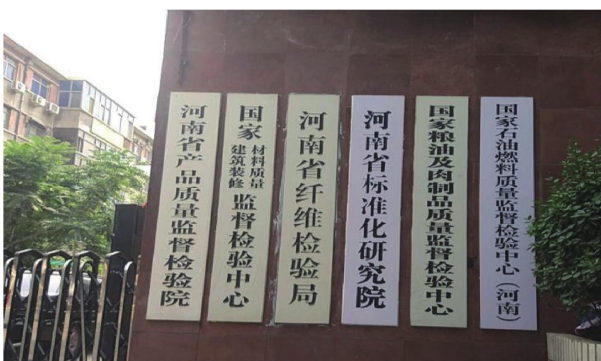 河南省产品质量监督检验院
国家建筑装修材料质量监督检验中心
河南省纤维检验局
河南省标准化研究院
国家粮油及肉制品质量监督检验中心
国家石油燃料质量监督检验中心（河南）